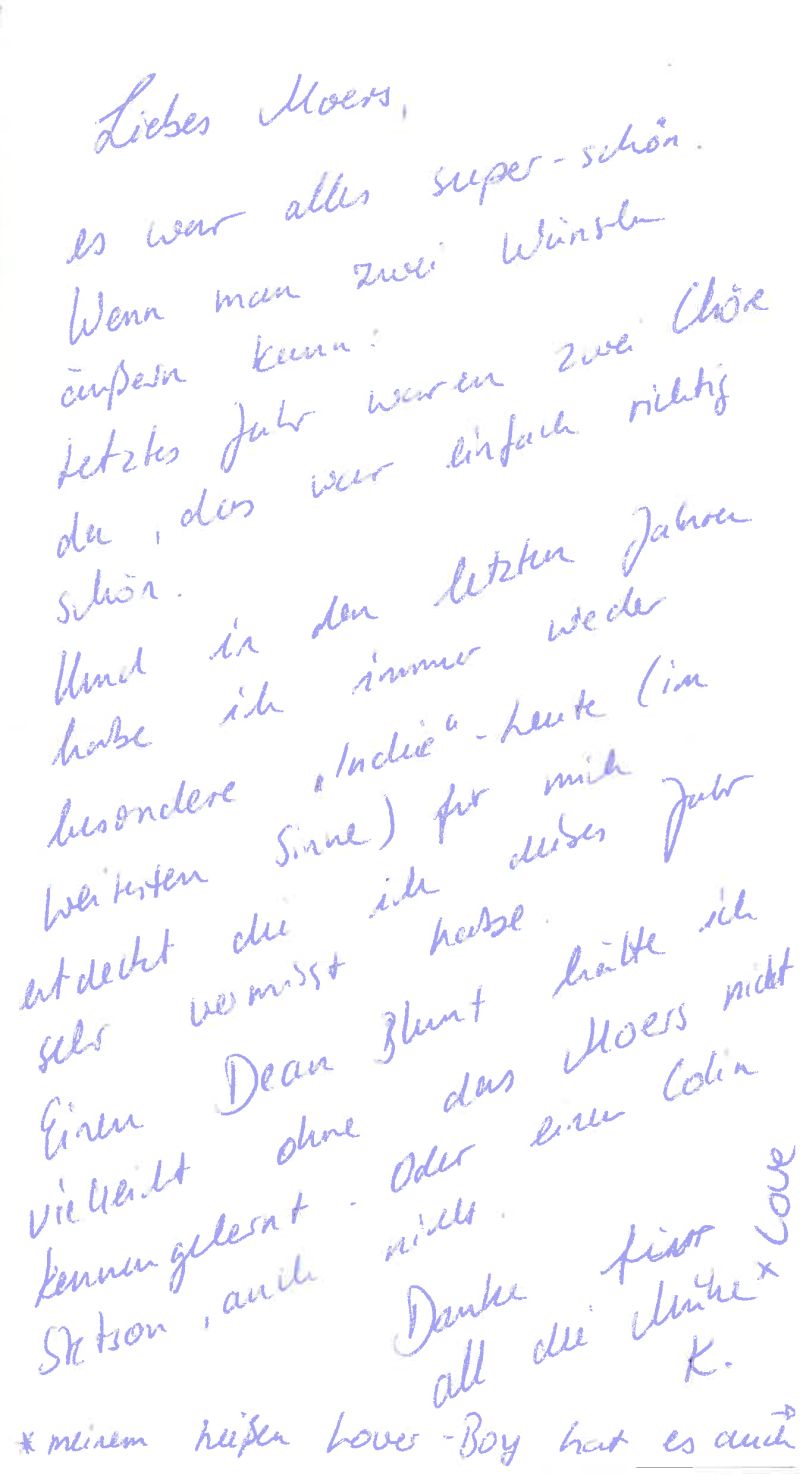 Liebes Moers,
es war alles super-schön.
Wenn man zwei Wünsche
äußern kann:
Letztes Jahr waren zwei Chöre
da, das war einfach richtig
schön.
Und in den letzten Jahren
habe ich immer wieder
besondere „Indie“-Leute (im
weitesten Sinne) für mich
entdeckt die ich dieses Jahr
sehr vermisst habe.
Einen Dean Blunt hätte ich
vielleicht ohne das Moers nicht
kennengelernt. Oder einen Colin
Stetson, auch nicht.
Danke für
all die Mühe x Love
K.
* meinem heißen Lover-Boy hat es auch →